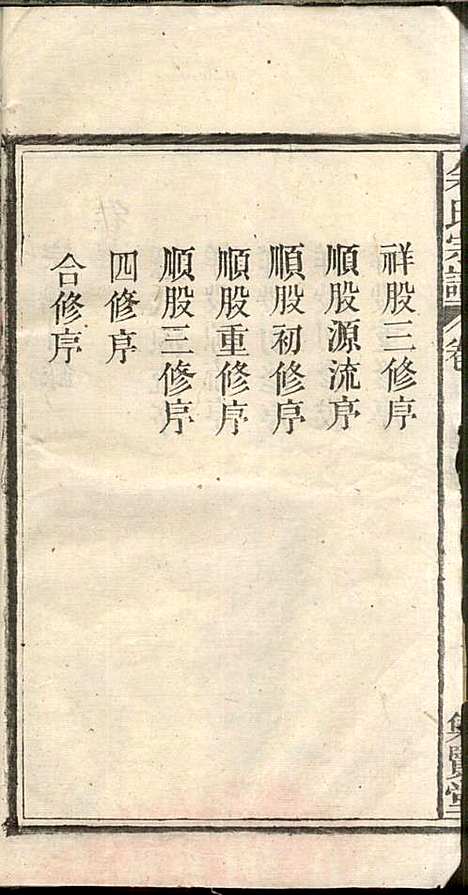 祥股三修序
順股源流序
順股初修序
順股重修序
順股三修序
四修序
合修序
氏宗譜
卷
集賢堂